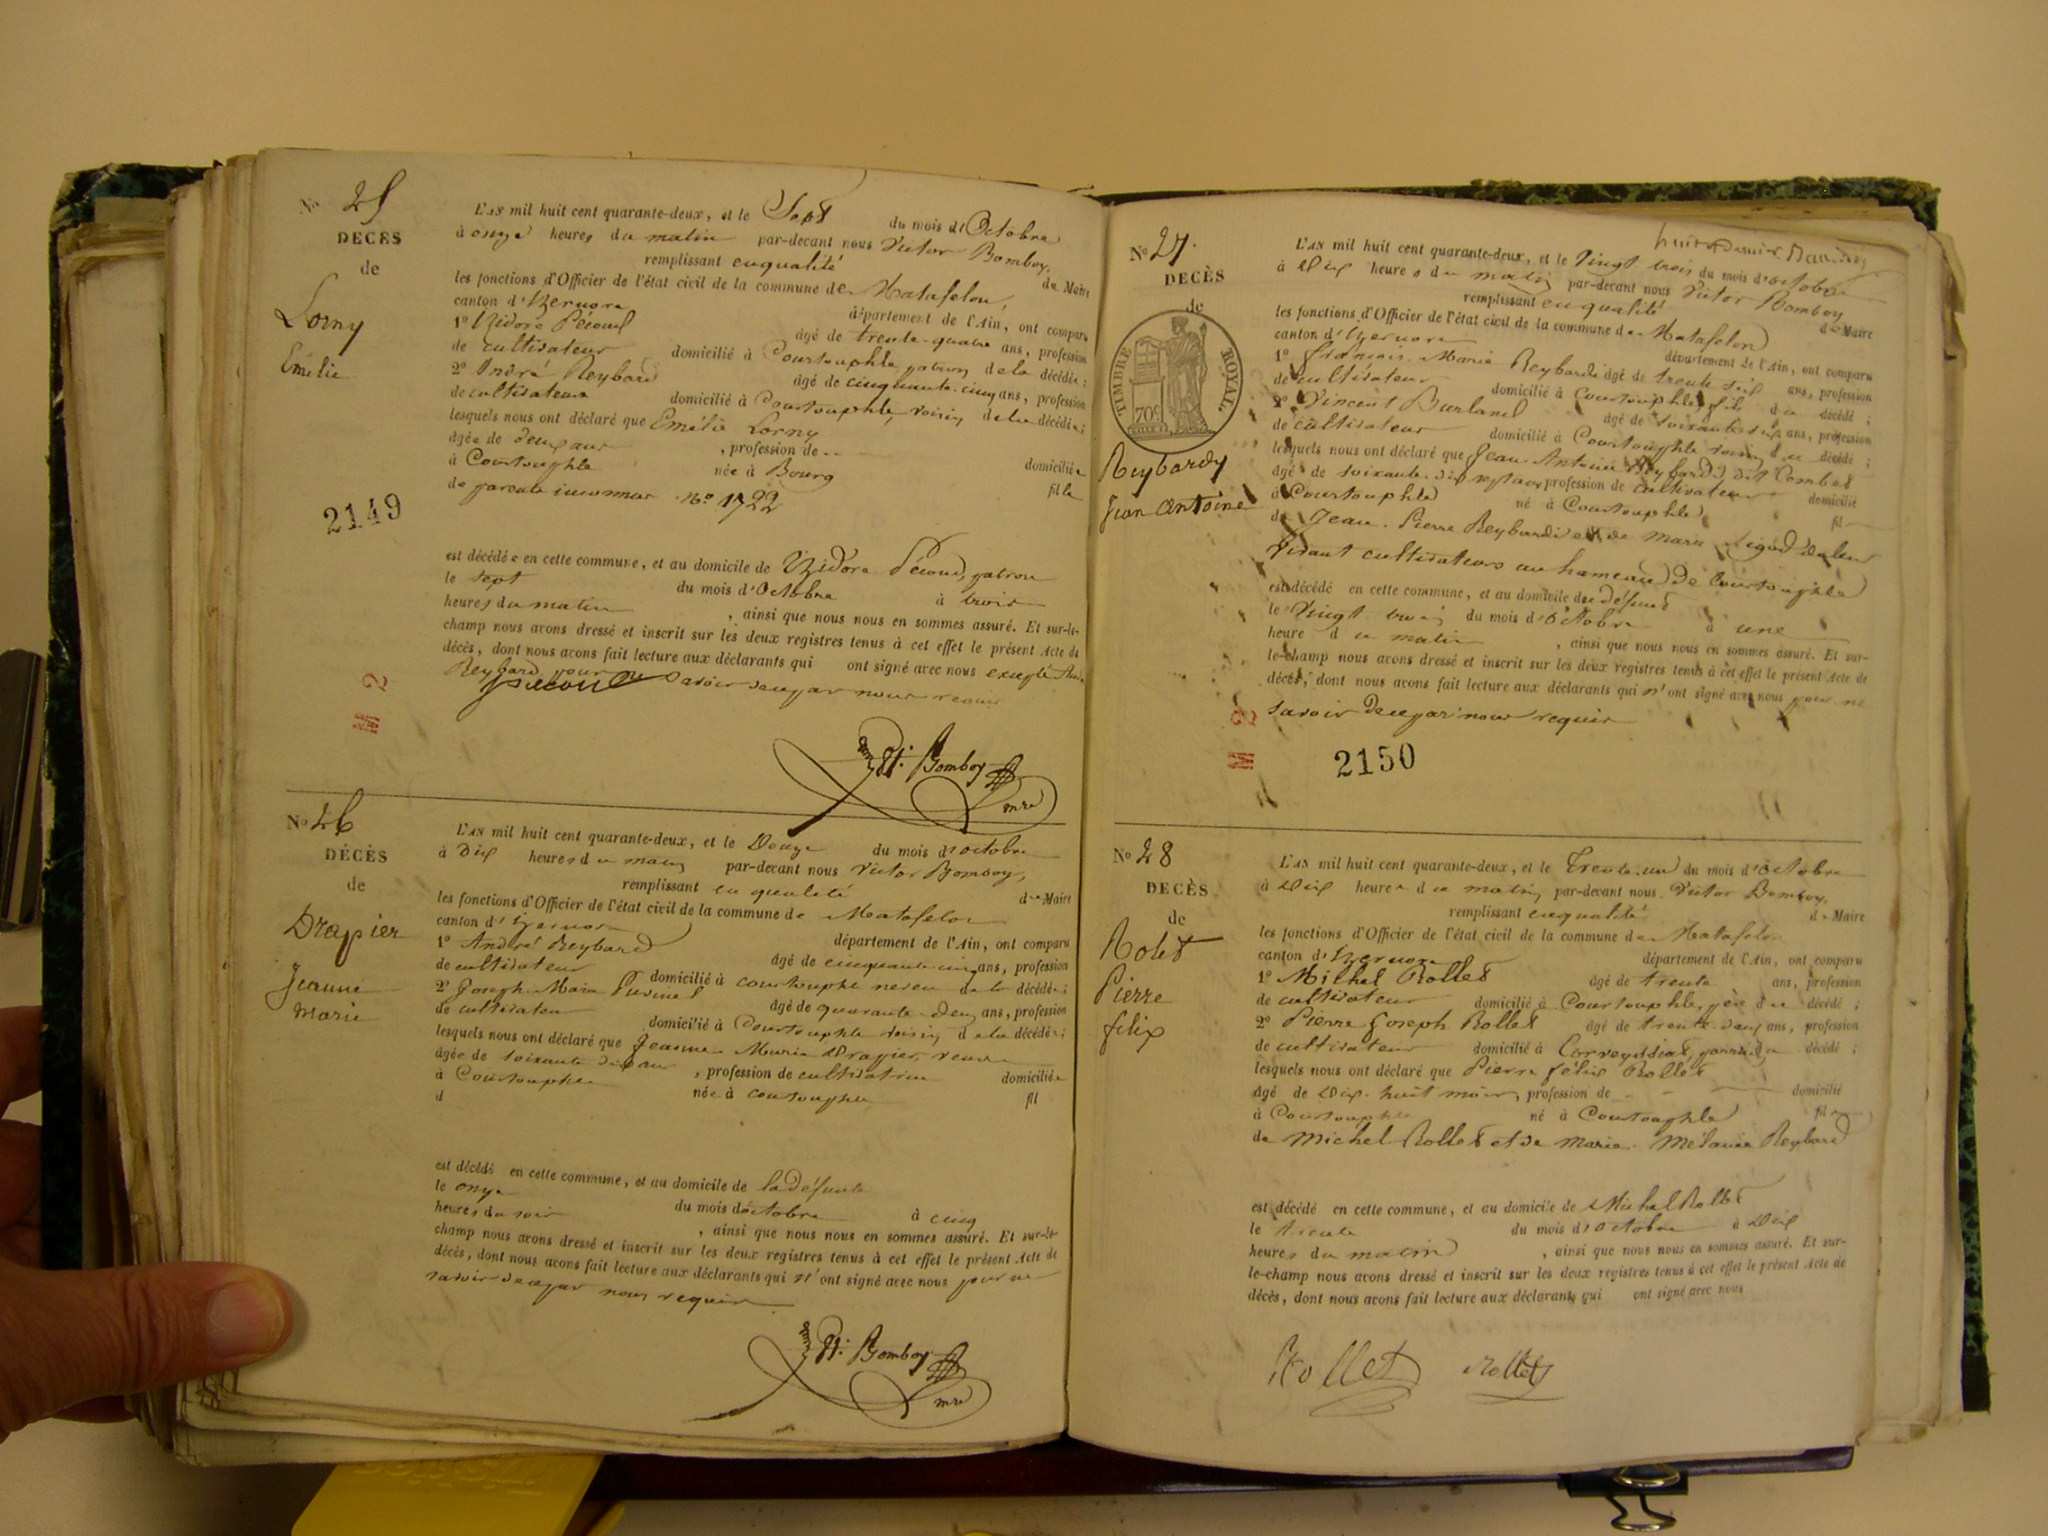 No 25
DÉCÈS
de
Lorny
Emélie
2149
L'AN mil huit cent quarante-deux, et le Sept du mois d'Octobre
à onze heures du matin par-devant nous Victor Bomboy,
remplissant en qualité de Maire
les fonctions d'Officier de l'état civil de la commune de Matafelon,
canton d'Izernore département de l'Ain, ont comparu
1º Izidore Pécoud âgé de trente-quatre ans, profession
de cultivateur domicilié à Courtouphle, patron de la décédée;
2º André Reybard âgé de cinquante-cinq ans, profession
de cultivateur domicilié à Courtouphle, voisin de la décédée;
lesquels nous ont déclaré que Emélie Lorny
âgée de deux ans, profession de -- domiciliée
à Courtouphle née à Bourg fille
de parents inconnus Nº 1722
est décédée en cette commune, et au domicile de Izidore Pécoud, patron
le sept du mois d'Octobre à trois
heures du matin, ainsi que nous nous en sommes assuré. Et sur-le-
champ nous avons dressé et inscrit sur les deux registres tenus à cet effet le présent Acte de
décès, dont nous avons fait lecture aux déclarants qui ont signé avec nous excepté André
Reybard pour ne savoir de ce par nous requis
Pécoud
Vt. Bomboy
mre
M 2
No 26
DÉCÈS
de
Drapier
Jeanne
Marie
L'AN mil huit cent quarante-deux, et le Douze du mois d'octobre
à Dix heures du matin par-devant nous Victor Bomboy,
remplissant en qualité de Maire
les fonctions d'Officier de l'état civil de la commune de Matafelon
canton d'Izernore département de l'Ain, ont comparu
1º André Reybard âgé de cinquante-cinq ans, profession
de cultivateur domicilié à courtouphle neveu de la décédée;
2º Joseph-Marie âgé de quarante-deux ans, profession
de cultivateur domicilié à Courtouphle voisin de la décédée;
lesquels nous ont déclaré que Jeanne-Marie Drapier, veuve
âgée de soixante dix ans, profession de cultivatrice domiciliée
à Courtouphle née à courtouphle fil
d
est décédé en cette commune, et au domicile de la défunte
le onze du mois d'octobre à cinq
heures du soir, ainsi que nous nous en sommes assuré. Et sur-le-
champ nous avons dressé et inscrit sur les deux registres tenus à cet effet le présent Acte de
décès, dont nous avons fait lecture aux déclarants qui n'ont signé avec nous pour ne
savoir de ce par nous requis
Vt. Bomboy
mre
No 27.
DÉCÈS
de
TIMBRE ROYAL.
70c
Reybardy
Jean Antoine
L'AN mil huit cent quarante-deux, et le Vingt trois du mois d'octobre
à Dix heures du matin par-devant nous Victor Bomboy
remplissant en qualité de Maire
les fonctions d'Officier de l'état civil de la commune de Matafelon
canton d'Izernore département de l'Ain, ont comparu
1º François-Marie Reybardi âgé de trente six ans, profession
de cultivateur domicilié à Courtouphle, fils du décédé;
2º Vincent Burland âgé de soixante six ans, profession
de cultivateur domicilié à Courtouphle voisin du décédé;
lesquels nous ont déclaré que Jean-Antoine Reybardi dit Combet
âgé de soixante-dix sept ans, profession de cultivateur domicilié
à Courtouphle né à Courtouphle fil
de Jean-Pierre Reybardi et de Marie de leur
vivant cultivateurs au hameau de Courtouphle
est décédé en cette commune, et au domicile du défunt
le Vingt trois du mois d'Octobre à une
heure du matin, ainsi que nous nous en sommes assuré. Et sur-
le-champ nous avons dressé et inscrit sur les deux registres tenus à cet effet le présent Acte de
décès, dont nous avons fait lecture aux déclarants qui n'ont signé avec nous pour ne
savoir de ce par nous requis
M 2
2150
No 28
DÉCÈS
de
Rolet
Pierre
felix
L'AN mil huit cent quarante-deux, et le Trente-un du mois d'octobre
à Dix heures du matin, par-devant nous Victor Bomboy,
remplissant en qualité de Maire
les fonctions d'Officier de l'état civil de la commune de Matafelon
canton d'Izernore département de l'Ain, ont comparu
1º Michel Rollet âgé de trente ans, profession
de cultivateur domicilié à Courtouphle, père du décédé;
2º Pierre Joseph Rollet âgé de trente-deux ans, profession
de cultivateur domicilié à Corveyssiat, du décédé;
lesquels nous ont déclaré que Pierre félix Rollet
âgé de Dix-huit mois, profession de - domicilié
à Courtouphle né à Courtouphle fils
de Michel Rollet et de Marie-Mélanie Reybard
est décédé en cette commune, et au domicile de Michel Rollet
le trente du mois d'Octobre à Dix
heures du matin, ainsi que nous nous en sommes assuré. Et sur-
le-champ nous avons dressé et inscrit sur les deux registres tenus à cet effet le présent Acte de
décès, dont nous avons fait lecture aux déclarants qui ont signé avec nous
Rollet Rollet